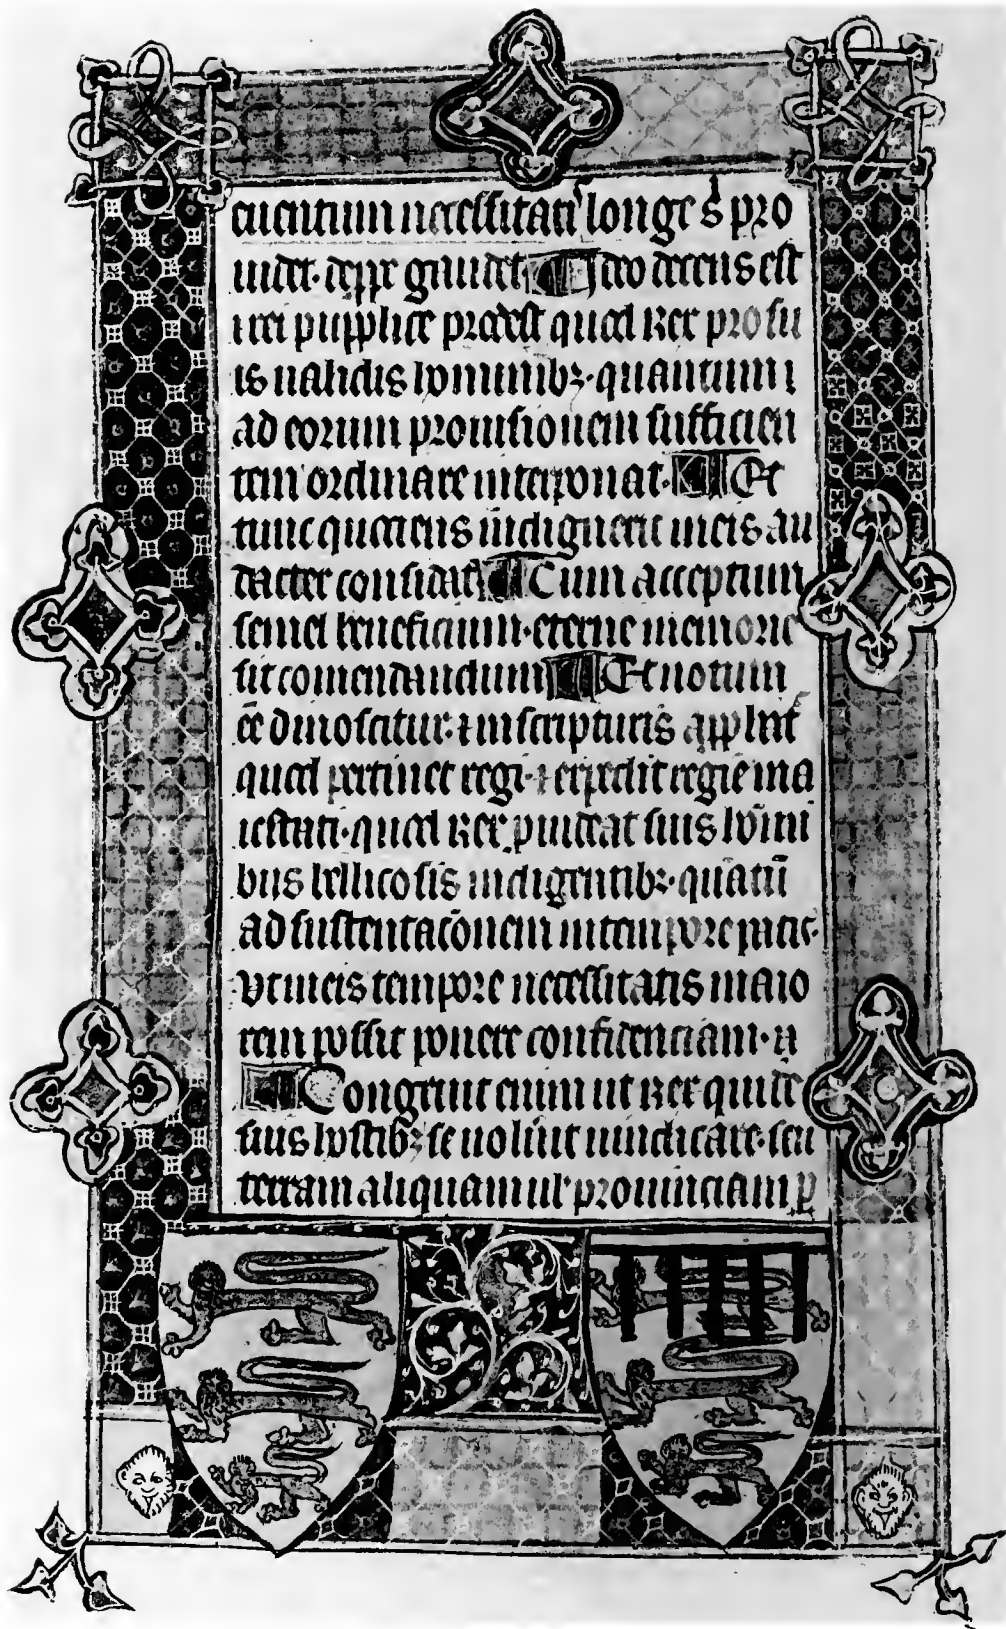 euentium necessitati longe s pro
uidet. gaudet. Ideo decens est
⁊ rei pupplice prodest quod Rex pro su
is ualidis hominibꝫ. quantum
ad eorum prouisionem sufficien
tem ordinare interponat. Et
tunc quociens indiguerit in eis au
dacter confidat. Cum acceptum
semel beneficium. eterne memorie
sit comendandum. Et notum
ēē dinoscitur. ⁊ in scripturis
quod pertinet regi. ⁊ expedit regie ma
iestati. quod Rex ꝓuideat suis hōīni
bus bellicosis indigentibꝫ. quātū
ad sustentacōnem in tempore pacis.
vt in eis tempore necessitatis maio
rem possit ponere confidenciam.
Congruit enim ut Rex qui de
suis hostibꝫ se uoluit uindicare. seu
terram aliquam ul' prouinciam ꝑ